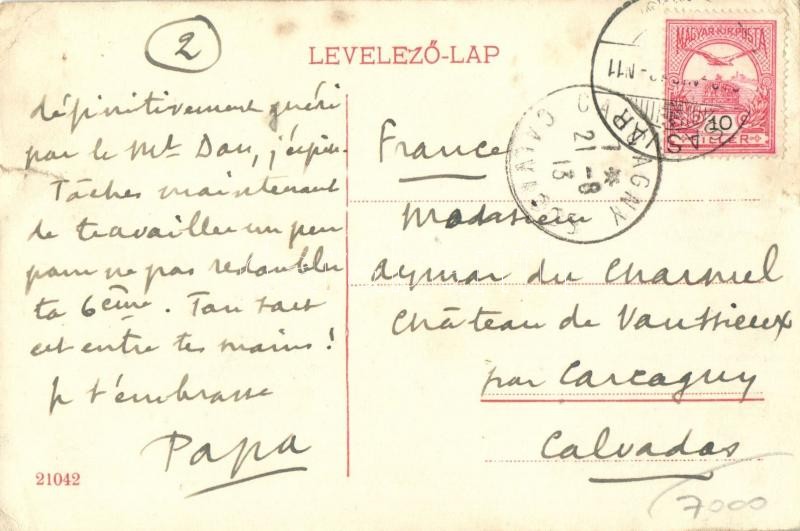 2
LEVELEZŐ-LAP
MAGYAR KIR. POSTA
10
FILLÉR
définitivement guéri
par le Mt Dau, j'espère.
Tâches maintenant
de travailler un peu
pour ne pas redoubler
ta 6ème. Ton sort
est entre tes mains!
Je t'embrasse
Papa
21042
CALVADOS
21 - 8
13
France
Monsieur
Aymar du Charmel
Château de Vaussieux
par Carcagny
Calvados
7000